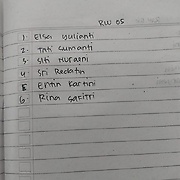 RW 05
1. Elsa Yulianti
2. Tati Sumanti
3. Siti Nuraeni
4. Sri Redatin
5 Entin Kartini
6. Rina Safitri